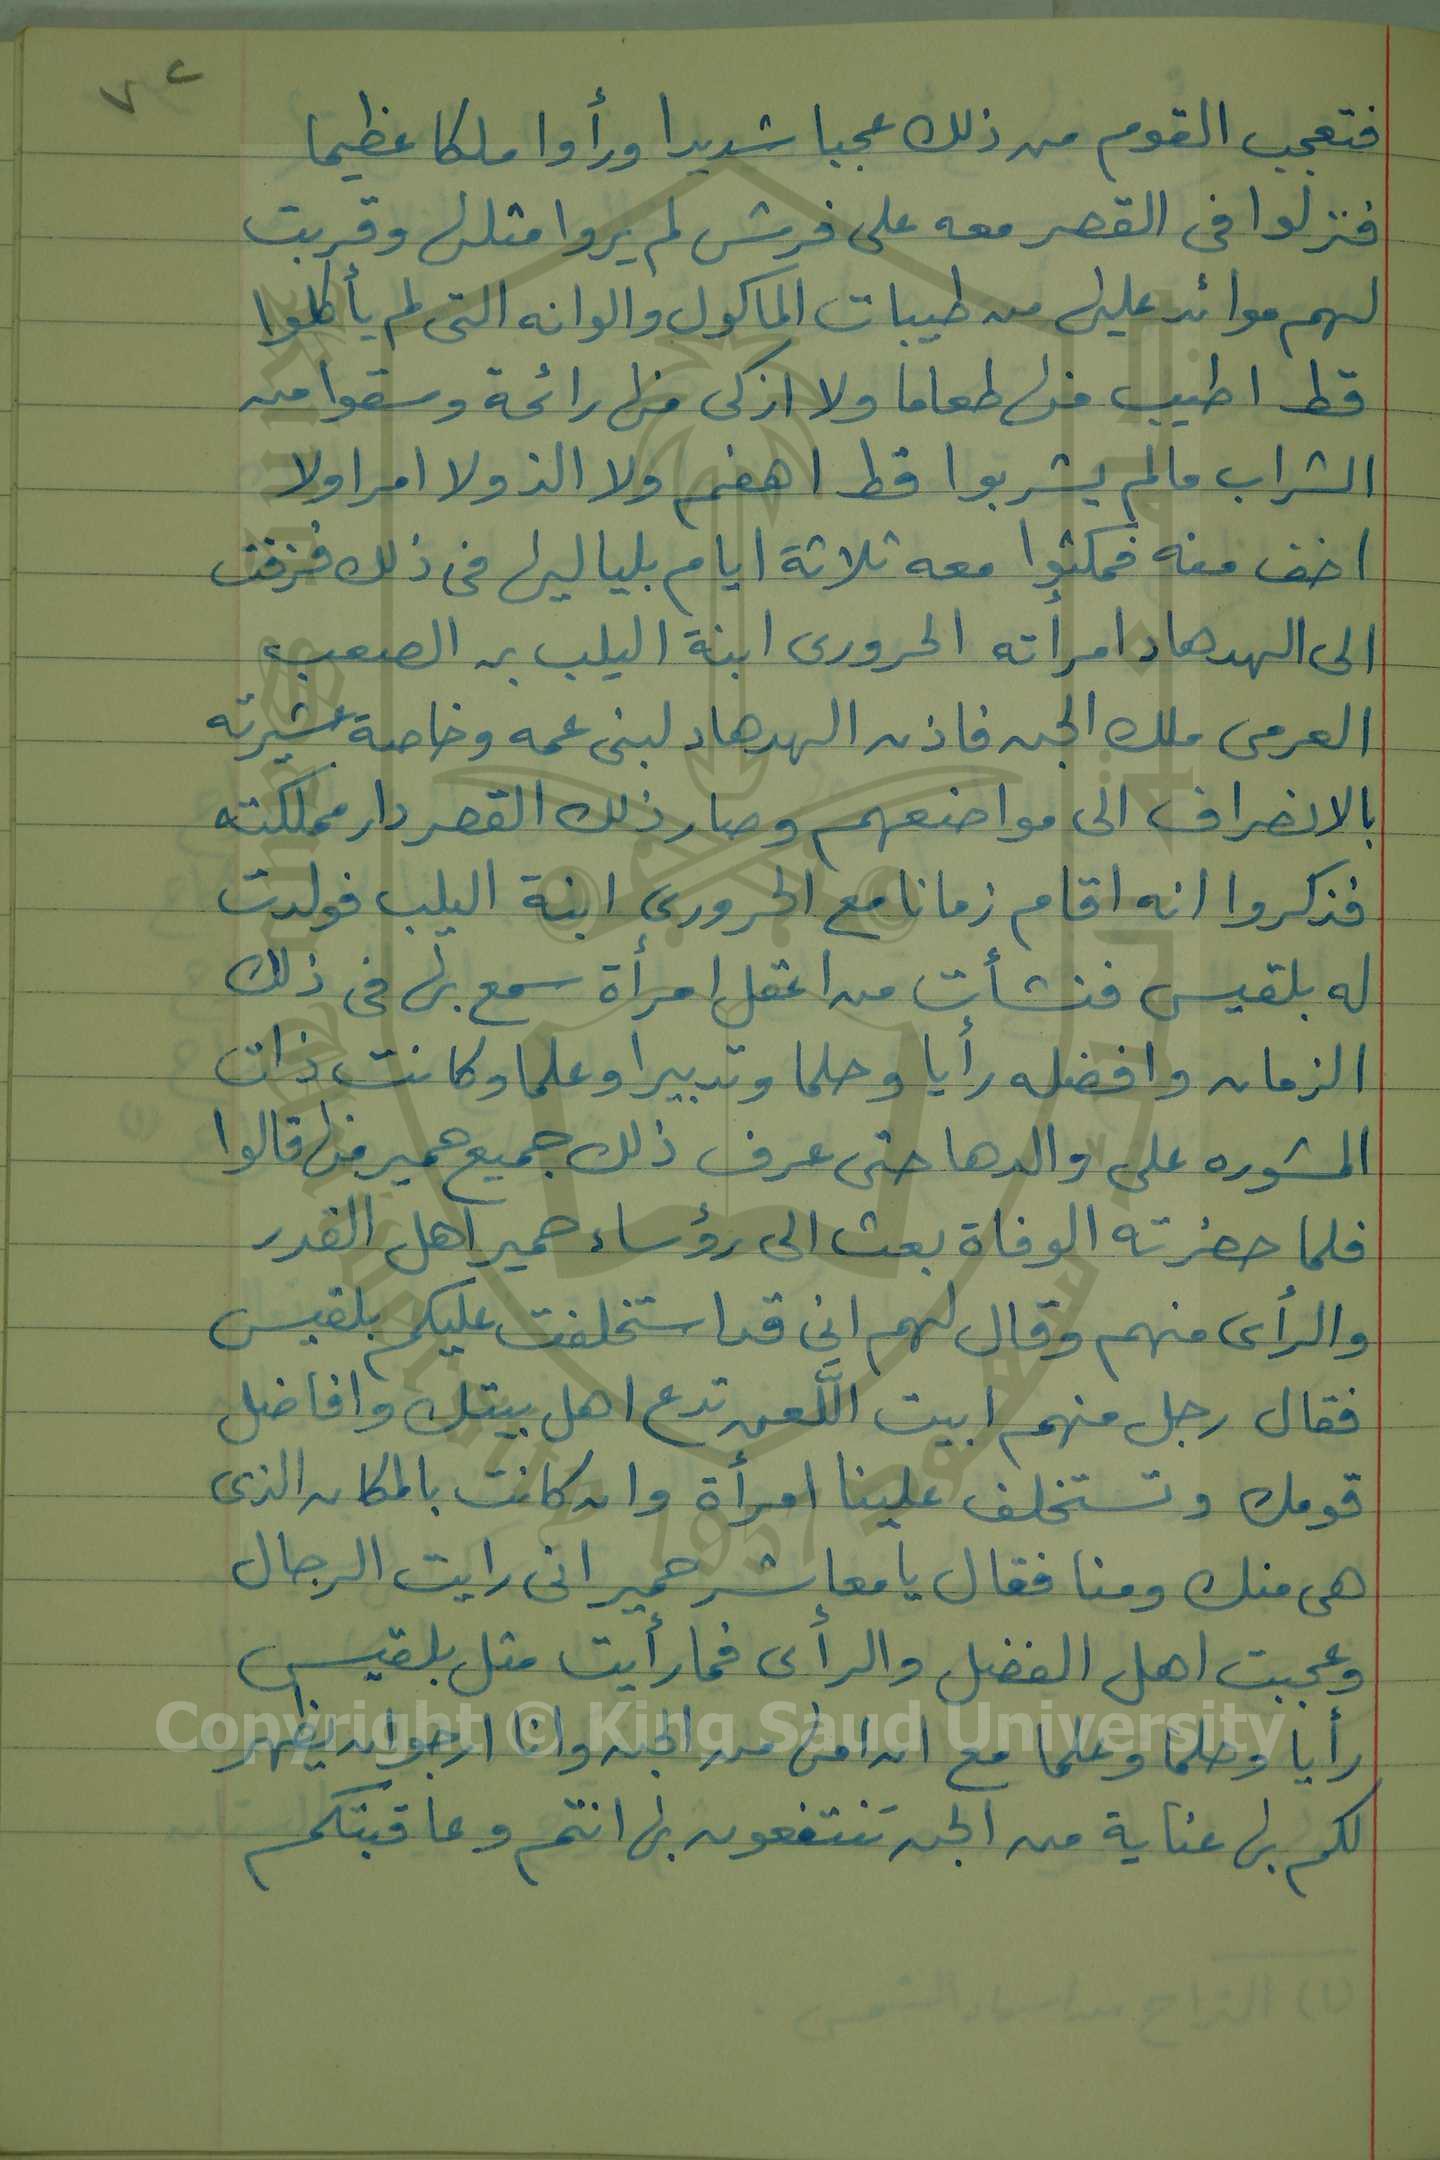 ٧٢
فتعجب القوم من ذلك عجبا شديدا ورأوا ملكا عظيما
فنزلوا فى القصر معه على فرش لم يروا مثلها وقربت
لهم موائد عليها من طيبات الماكول والوانه التى لم يأكلوا
قط اطيب منها طعاما ولا ازكى منها رائحة وسقوا من
الشراب مالم يشربوا قط اهضم ولا الذ ولا امرا ولا
اخف منه فمكثوا معه ثلاثة ايام بلياليها فى ذلك فزفت
الى الهدهاد امرأته الحرورى ابنة اليلب بن الصعب
العرمى ملك الجن فاذن الهدهاد لبنى عمه وخاصة عشيرته
بالانصراف الى مواضعهم وصار ذلك القصر دار مملكته
فذكروا انه اقام زمانا مع الحرورى ابنة اليلب فولدت
له بلقيس فنشأت من اعقل امرأة سمع بها فى ذلك
الزمان وافضله رأيا وحلما وتدبيرا وعلما وكانت ذات
المشوره على والدها حتى عرف ذلك جميع حمير منها قالوا
فلما حضرته الوفاة بعث الى رؤساء حمير اهل القدر
والرأى منهم وقال لهم اني قد استخلفت عليكم بلقيس
فقال رجل منهم ابيت اللَّعن تدع اهل بيتك وافاضل
قومك وتستخلف علينا امرأة وان كانت بالمكان الذى
هى منك ومنا فقال يا معاشر حمير انى رايت الرجال
وعجبت اهل الفضل والرأى فما رأيت مثل بلقيس
رأيا وحلما وعلما مع ان امها من الجن وانا ارجو ان يظهر
لكم بها عناية من الجن تنتفعون بها انتم وعاقبتكم
Copyright © King Saud University
1957